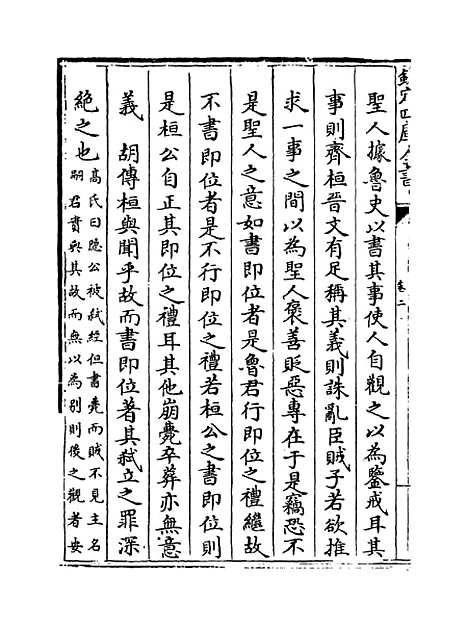 欽定四庫全書
卷二
聖人據魯史以書其事使人自觀之以為鑒戒耳其
事則齊桓晉文有足稱其義則誅亂臣賊子若欲推
求一事之間以為聖人褒善貶惡專在于是竊恐不
是聖人之意如書即位者是魯君行即位之禮繼故
不書即位者是不行即位之禮若桓公之書即位則
是桓公自正其即位之禮耳其他崩薨卒葬亦無意
義　胡傳桓與聞乎故而書即位著其弑立之罪深
絶之也高氏曰隠公被弑經但書薨而賊不見主名
嗣君實與其故而無以為别則後之觀者安